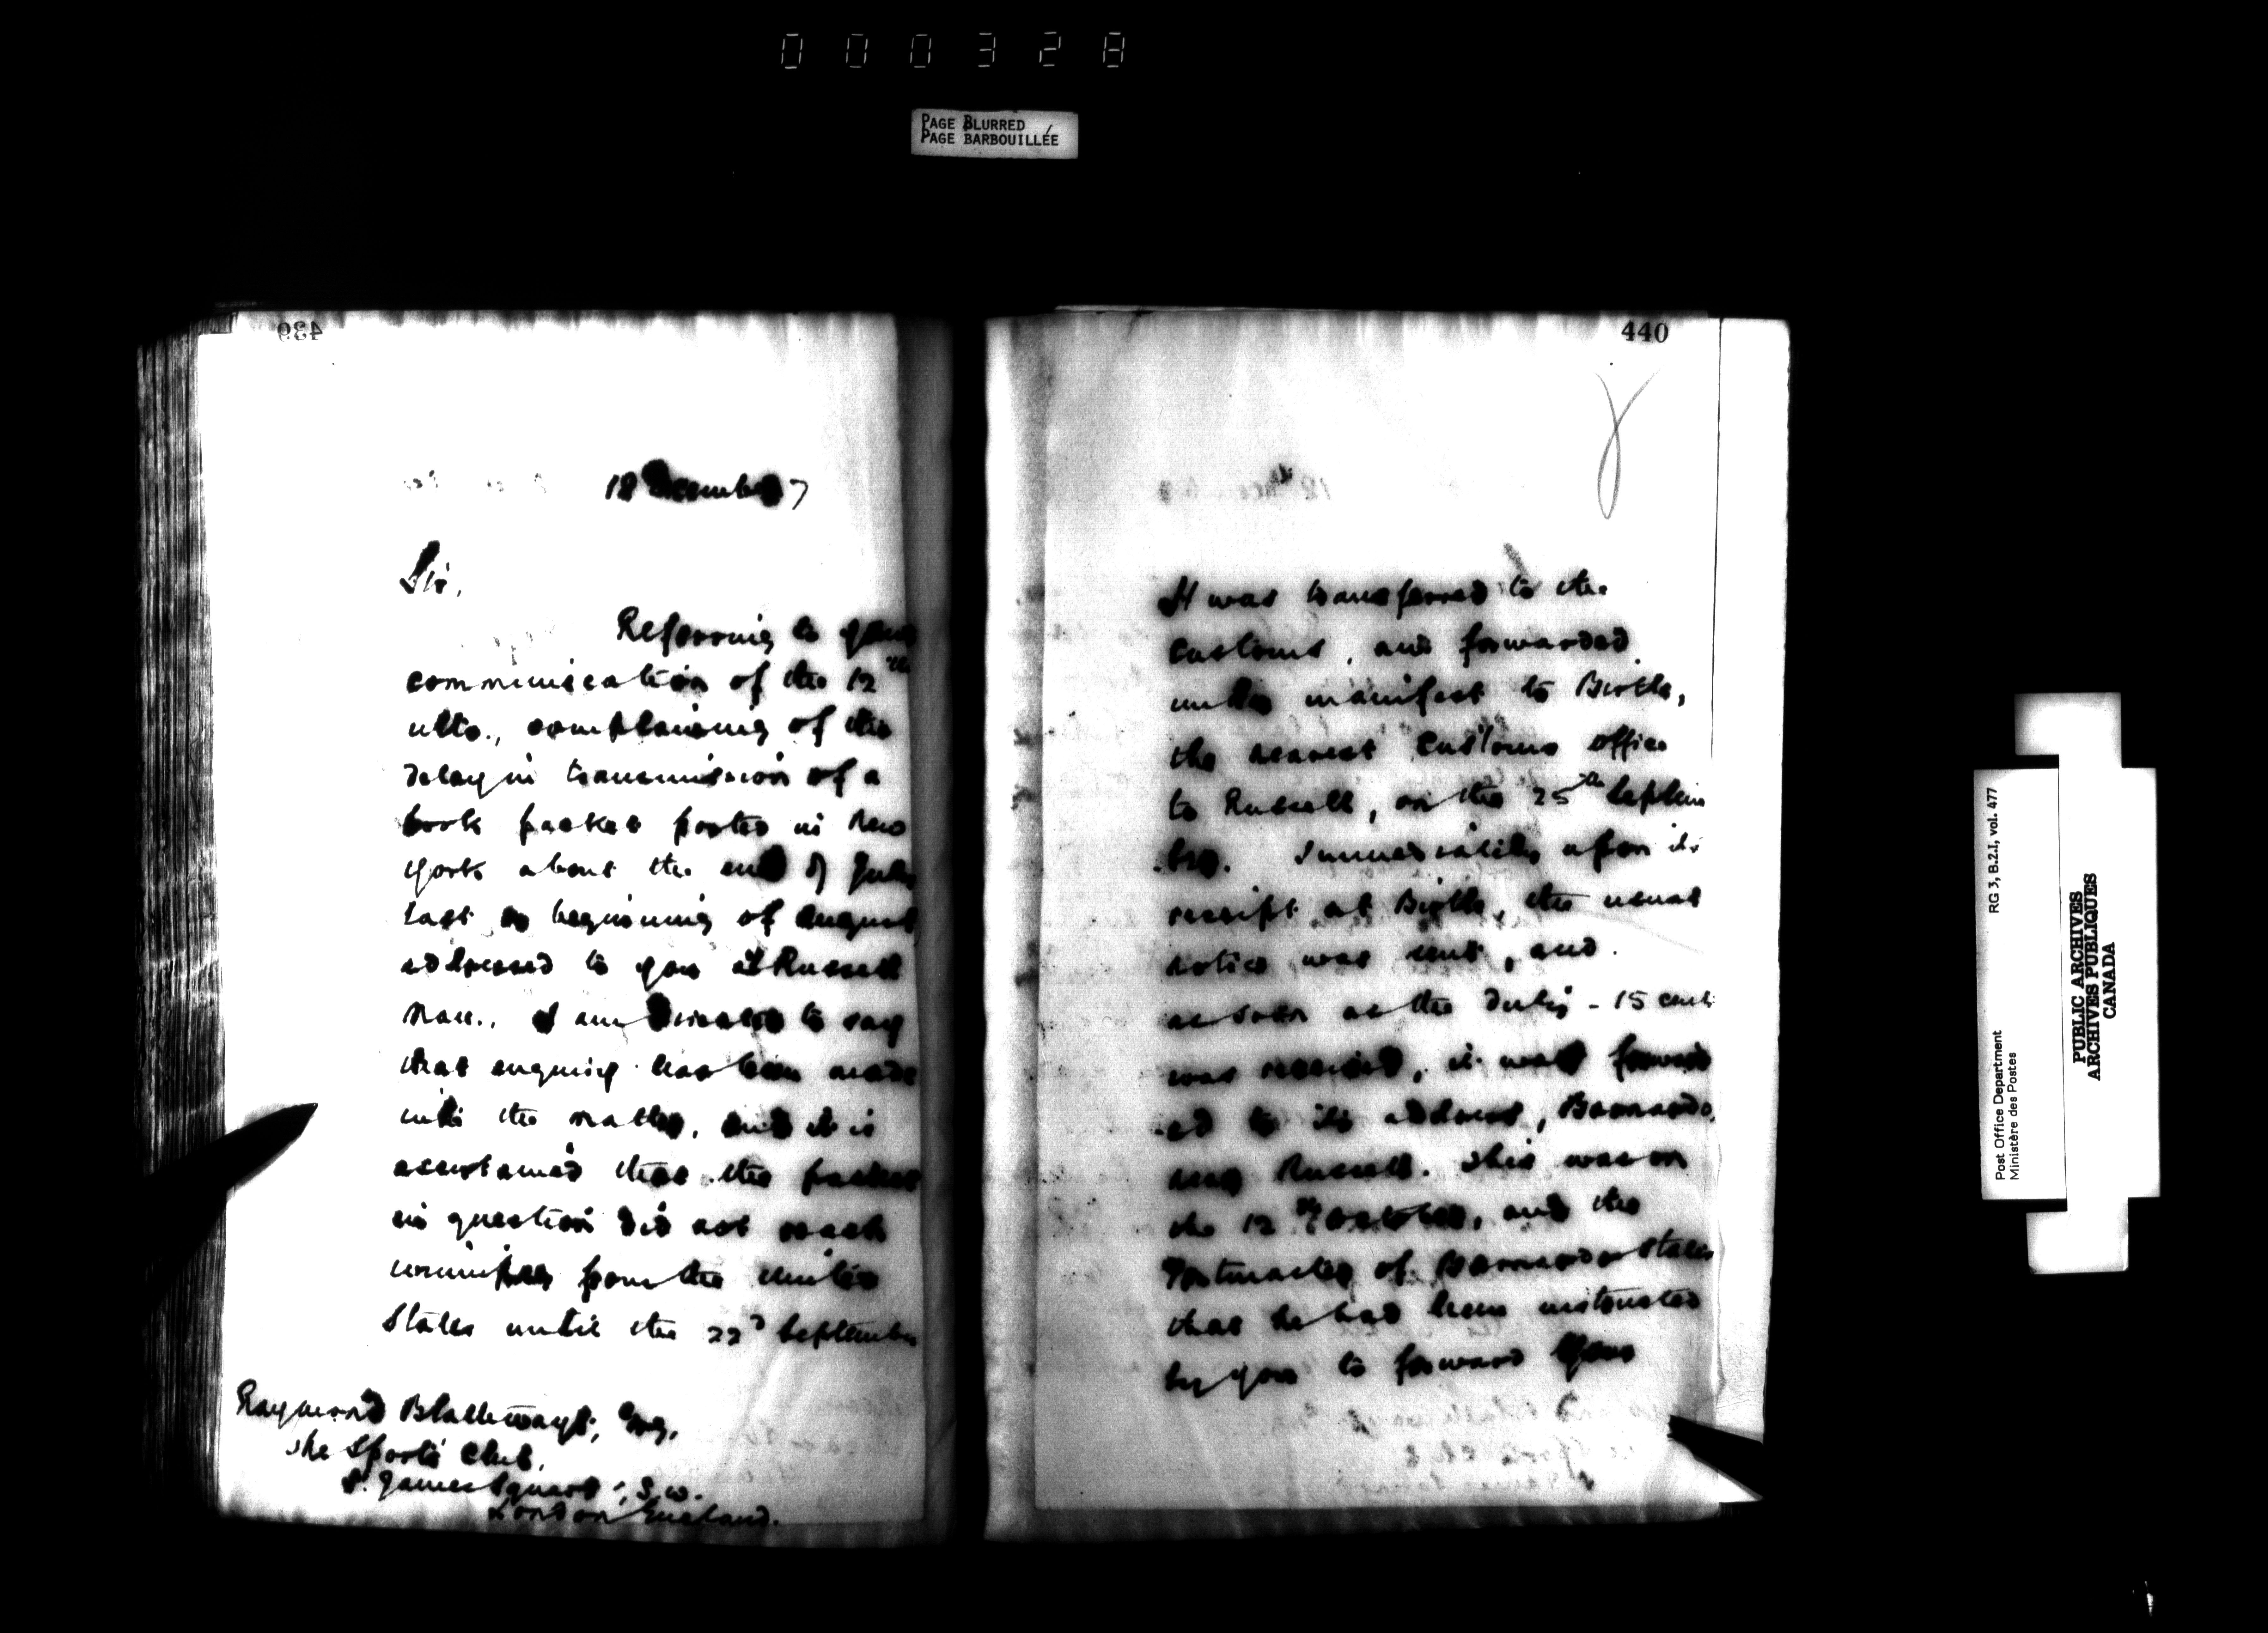 000328
PAGE BLURRED
PAGE BARBOUILLÉE
439
18 December 7
Sir,
Referring to your
communication of the 12th
ulto., complaining of the
delay in transmission of a
book packet posted in New
York about the end of July
last or beginning of August
addressed to you at Russell
Man., I am directed to say
that enquiry has been made
into the matter, and it is
ascertained that the packet
in question did not reach
Winnipeg from the United
States until the 22d September
Raymond Blathwayt, Esq.
The Sports Club,
St. James Square, S.W.
London England.
440
It was transferred to the
Customs, and forwarded
under manifest to Birtle,
the nearest Customs office
to Russell, on the 25th Septem
ber. Immediately upon its
receipt at Birtle, the usual
notice was sent, and
as soon as the duty - 15 cents
was received, it was forward
ed to its address, Barnardo,
near Russell. This was on
the 12th October, and the
Postmaster of Barnardo states
that he had been instructed
by you to forward your
Post Office Department
Ministère des Postes
RG 3, B.2.I, vol. 477
PUBLIC ARCHIVES
ARCHIVES PUBLIQUES
CANADA